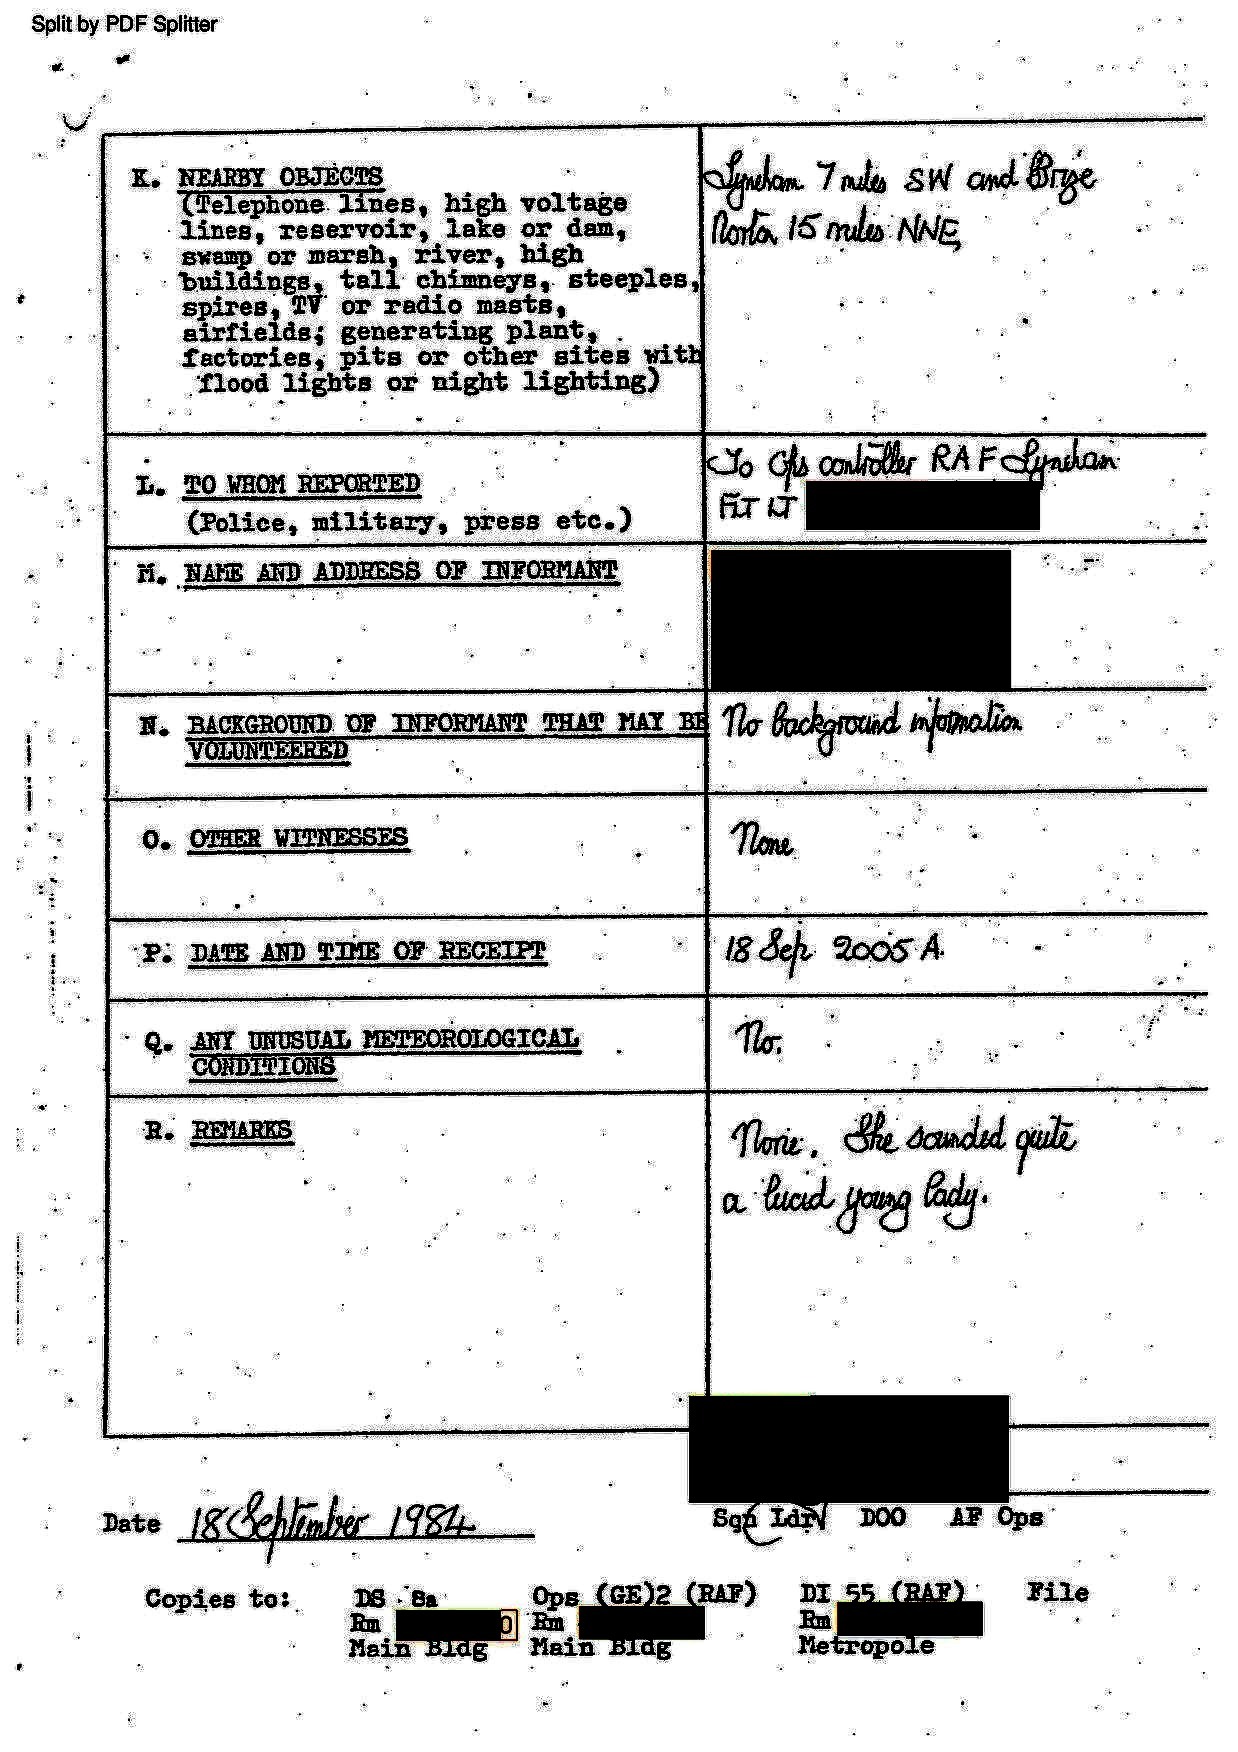 Split by PDF Splitter
K. NEARBY OBJECTS
(Telephone lines, high voltage
lines, reservoir, lake or dam,
swamp or marsh, river, high
buildings, tall chimneys, steeples,
spires, TV or radio masts,
airfields; generating plant,
factories, pits or other sites with
flood lights or night lighting)
Lyneham 7 miles SW and Brize
Norton 15 miles NNE
L. TO WHOM REPORTED
(Police, military, press etc.)
To Ops controller RAF Lyneham
FLT LT
M. NAME AND ADDRESS OF INFORMANT
N. BACKGROUND OF INFORMANT THAT MAY BE
VOLUNTEERED
No background information
O. OTHER WITNESSES
None
P. DATE AND TIME OF RECEIPT
18 Sep 2005 A.
Q. ANY UNUSUAL METEOROLOGICAL
CONDITIONS
No.
R. REMARKS
None. She sounded quite
a lucid young lady.
Date 18 September 1984
Sqn Ldr DOO AF Ops
Copies to: DS 8a Ops (GE)2 (RAF) DI 55 (RAF) File
Rm Rm Rm
Main Bldg Main Bldg Metropole